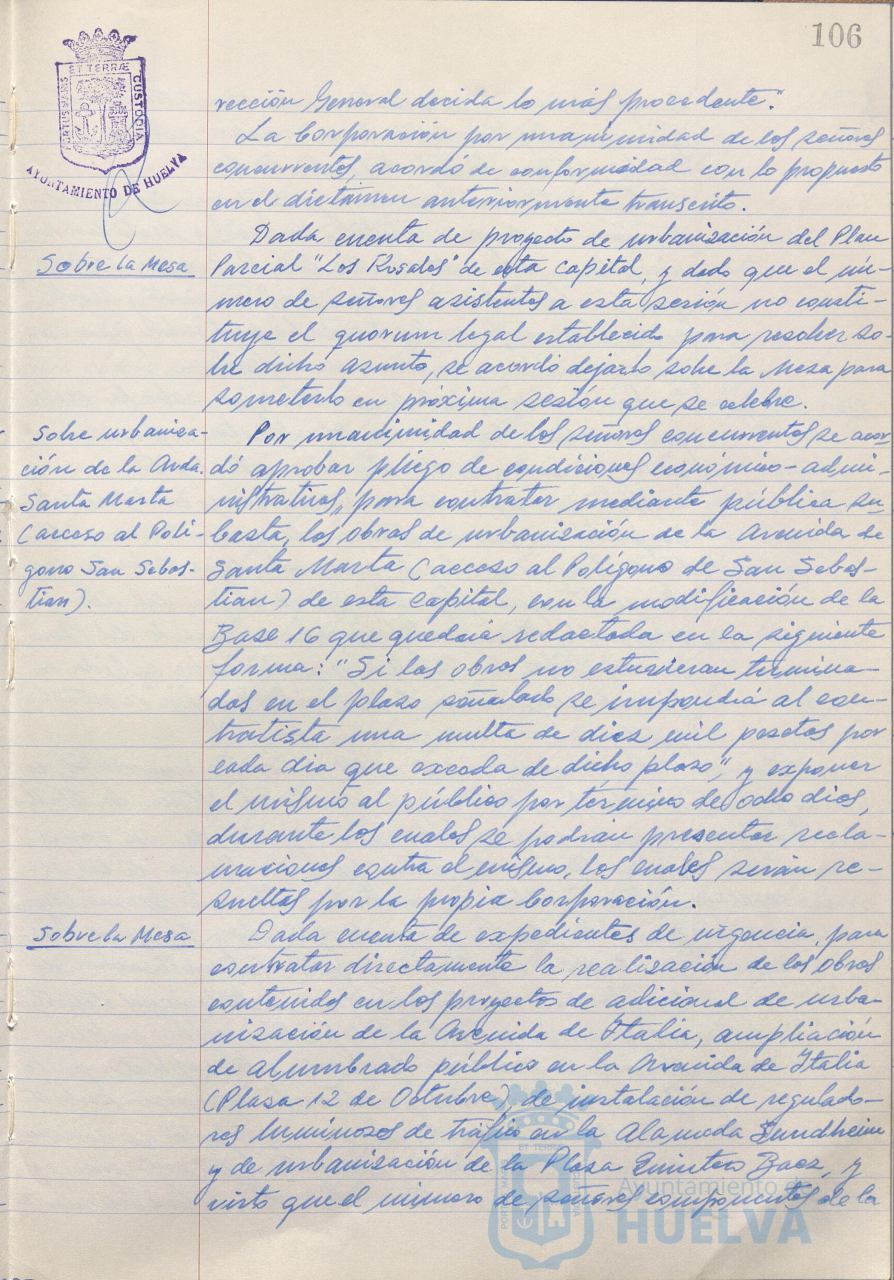 106
PORTUS MARIS ET TERRÆ CUSTODIA
AYUNTAMIENTO DE HUELVA
rección General decida lo más procedente".
La Corporación por unanimidad de los señores
concurrentes, acordó de conformidad con lo propuesto
en el dictamen anteriormente transcrito.
Sobre la Mesa
Dada cuenta de proyecto de urbanización del Plan
Parcial "Los Rosales" de esta capital, y dado que el nú-
mero de señores asistentes a esta sesión no consti-
tuye el quorum legal establecido para resolver so-
bre dicho asunto, se acordó dejarlo sobre la Mesa para
someterlo en próxima sesión que se celebre.
Sobre urbaniza-
ción de la Avda.
Santa Marta
(acceso al Polí-
gono San Sebas-
tian).
Por unanimidad de los señores concurrentes se acor-
dó aprobar pliego de condiciones económico-admi-
nistrativas, para contratar mediante pública su-
basta, las obras de urbanización de la Avenida de
Santa Marta (acceso al Polígono de San Sebas-
tian) de esta capital, con la modificación de la
Base 16 que quedará redactada en la siguiente
forma: "Si las obras no estuvieran termina-
das en el plazo señalado se impondrá al con-
tratista una multa de diez mil pesetas por
cada dia que exceda de dicho plazo", y exponer
el mismo al público por termino de ocho dias,
durante los cuales se podrán presentar recla-
maciones contra el mismo, las cuales serán re-
sueltas por la propia Corporación.
Sobre la Mesa
Dada cuenta de expedientes de urgencia, para
contratar directamente la realización de las obras
contenidas en los proyectos de adicional de urba-
nización de la Avenida de Italia, ampliación
de alumbrado público en la Avenida de Italia
(Plaza 12 de Octubre), de instalación de regulado-
res luminosos de tráfico en la Alameda Sundheim
y de urbanización de la Plaza Quintero Baez, y
visto que el número de señores componentes de la
Ayuntamiento de
HUELVA